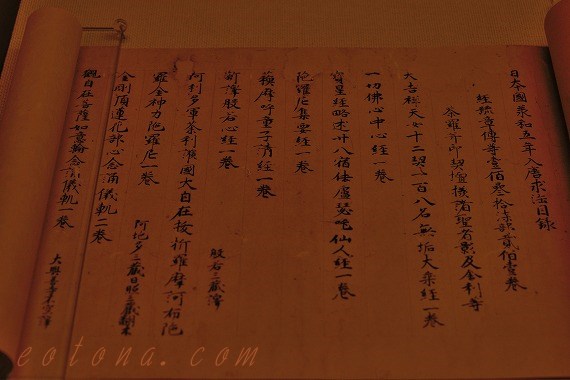 日本國承和五年入唐求法目録
經論章傳等壹佰叁拾柒部貳佰壹卷
荼羅并印契壇樣諸聖者影及舍利等
大吉祥天女十二契一百八名無垢大乘經一卷
一切佛心中心經一卷
寶星經略述廿八宿佉盧瑟吒仙人經一卷
陀羅尼集要經一卷
蘇摩呼童子請經一卷
新譯般若心經一卷 般若三藏譯
阿利多軍荼利護國大自在拔折羅摩訶布陀
羅金神力陀羅尼一卷 阿地多三藏
金剛頂蓮花部心念誦儀軌二卷
觀自在菩薩如意輪念誦儀軌一卷 大興善寺
eotona.com